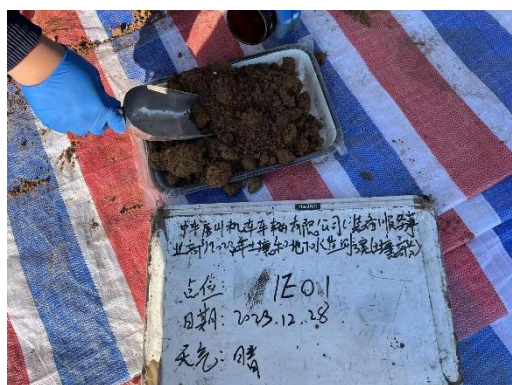 中车眉山机车车辆有限公司(装备服务事
业部)2023年土壤和地下水监测
点位: 1E01
日期: 2023.12.28
天气: 晴